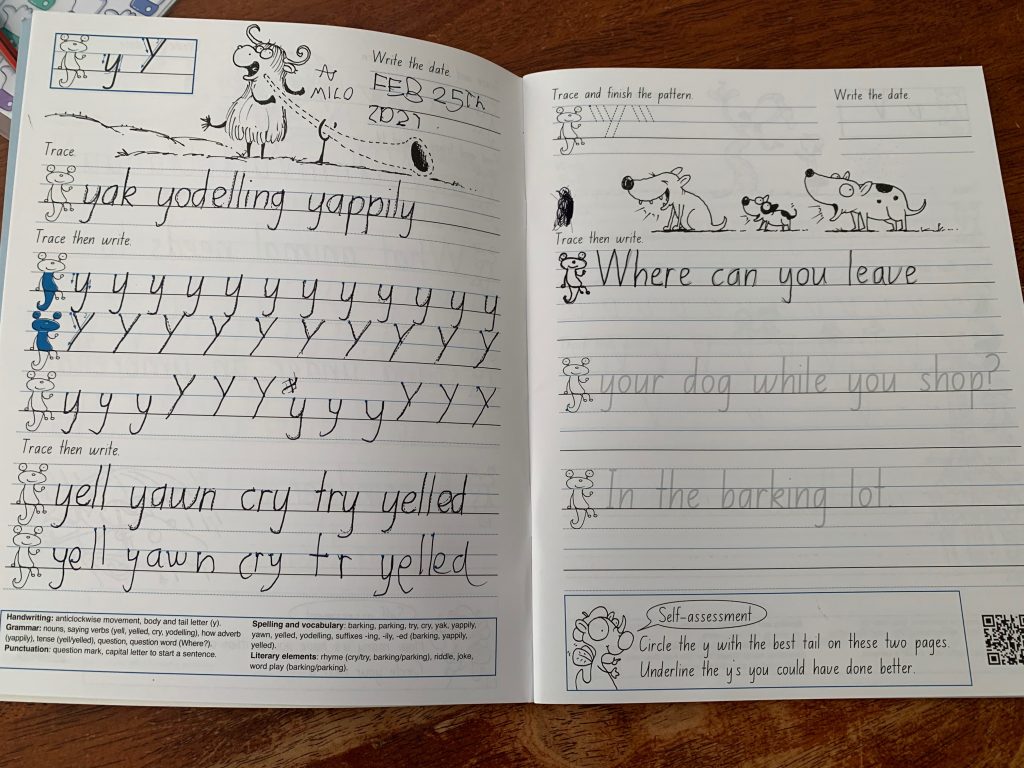 y Y
A
MILO
Write the date.
FEB 25th
2021
Trace.
yak yodelling yappily
Trace then write.
y y y y y y y y y y y y
Y Y Y Y Y Y Y Y Y y
y y y Y Y Y y y y Y Y Y
Trace then write.
yell yawn cry try yelled
yell yawn cry tr yelled
Handwriting: anticlockwise movement, body and tail letter (y).
Grammar: nouns, saying verbs (yell, yelled, cry, yodelling), how adverb
(yappily), tense (yell/yelled), question, question word (Where?).
Punctuation: question mark, capital letter to start a sentence.
Spelling and vocabulary: barking, parking, try, cry, yak, yappily,
yawn, yelled, yodelling, suffixes -ing, -ily, -ed (barking, yappily,
yelled).
Literary elements: rhyme (cry/try, barking/parking), riddle, joke,
word play (barking/parking).
Trace and finish the pattern.
Write the date.
Trace then write.
Where can you leave
your dog while you shop?
In the barking lot.
Self-assessment
Circle the y with the best tail on these two pages.
Underline the y's you could have done better.